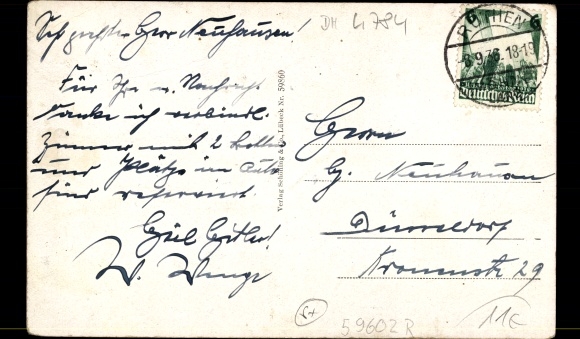 Sehr geehrter Herr Neuhausen!
Für Ihre w. Nachricht
danke ich verbindl.
Zimmer mit 2 Betten
und Plätze im Auto
sind reserviert
Heil Hitler!
W.
Verlag Schöning & Co., Lübeck Nr. 59860
DH 4784
KÖTHEN
9.36.18-19
6
6
Deutsches Reich
Herrn
Neuhausen
Düsseldorf
29
59602R
11€